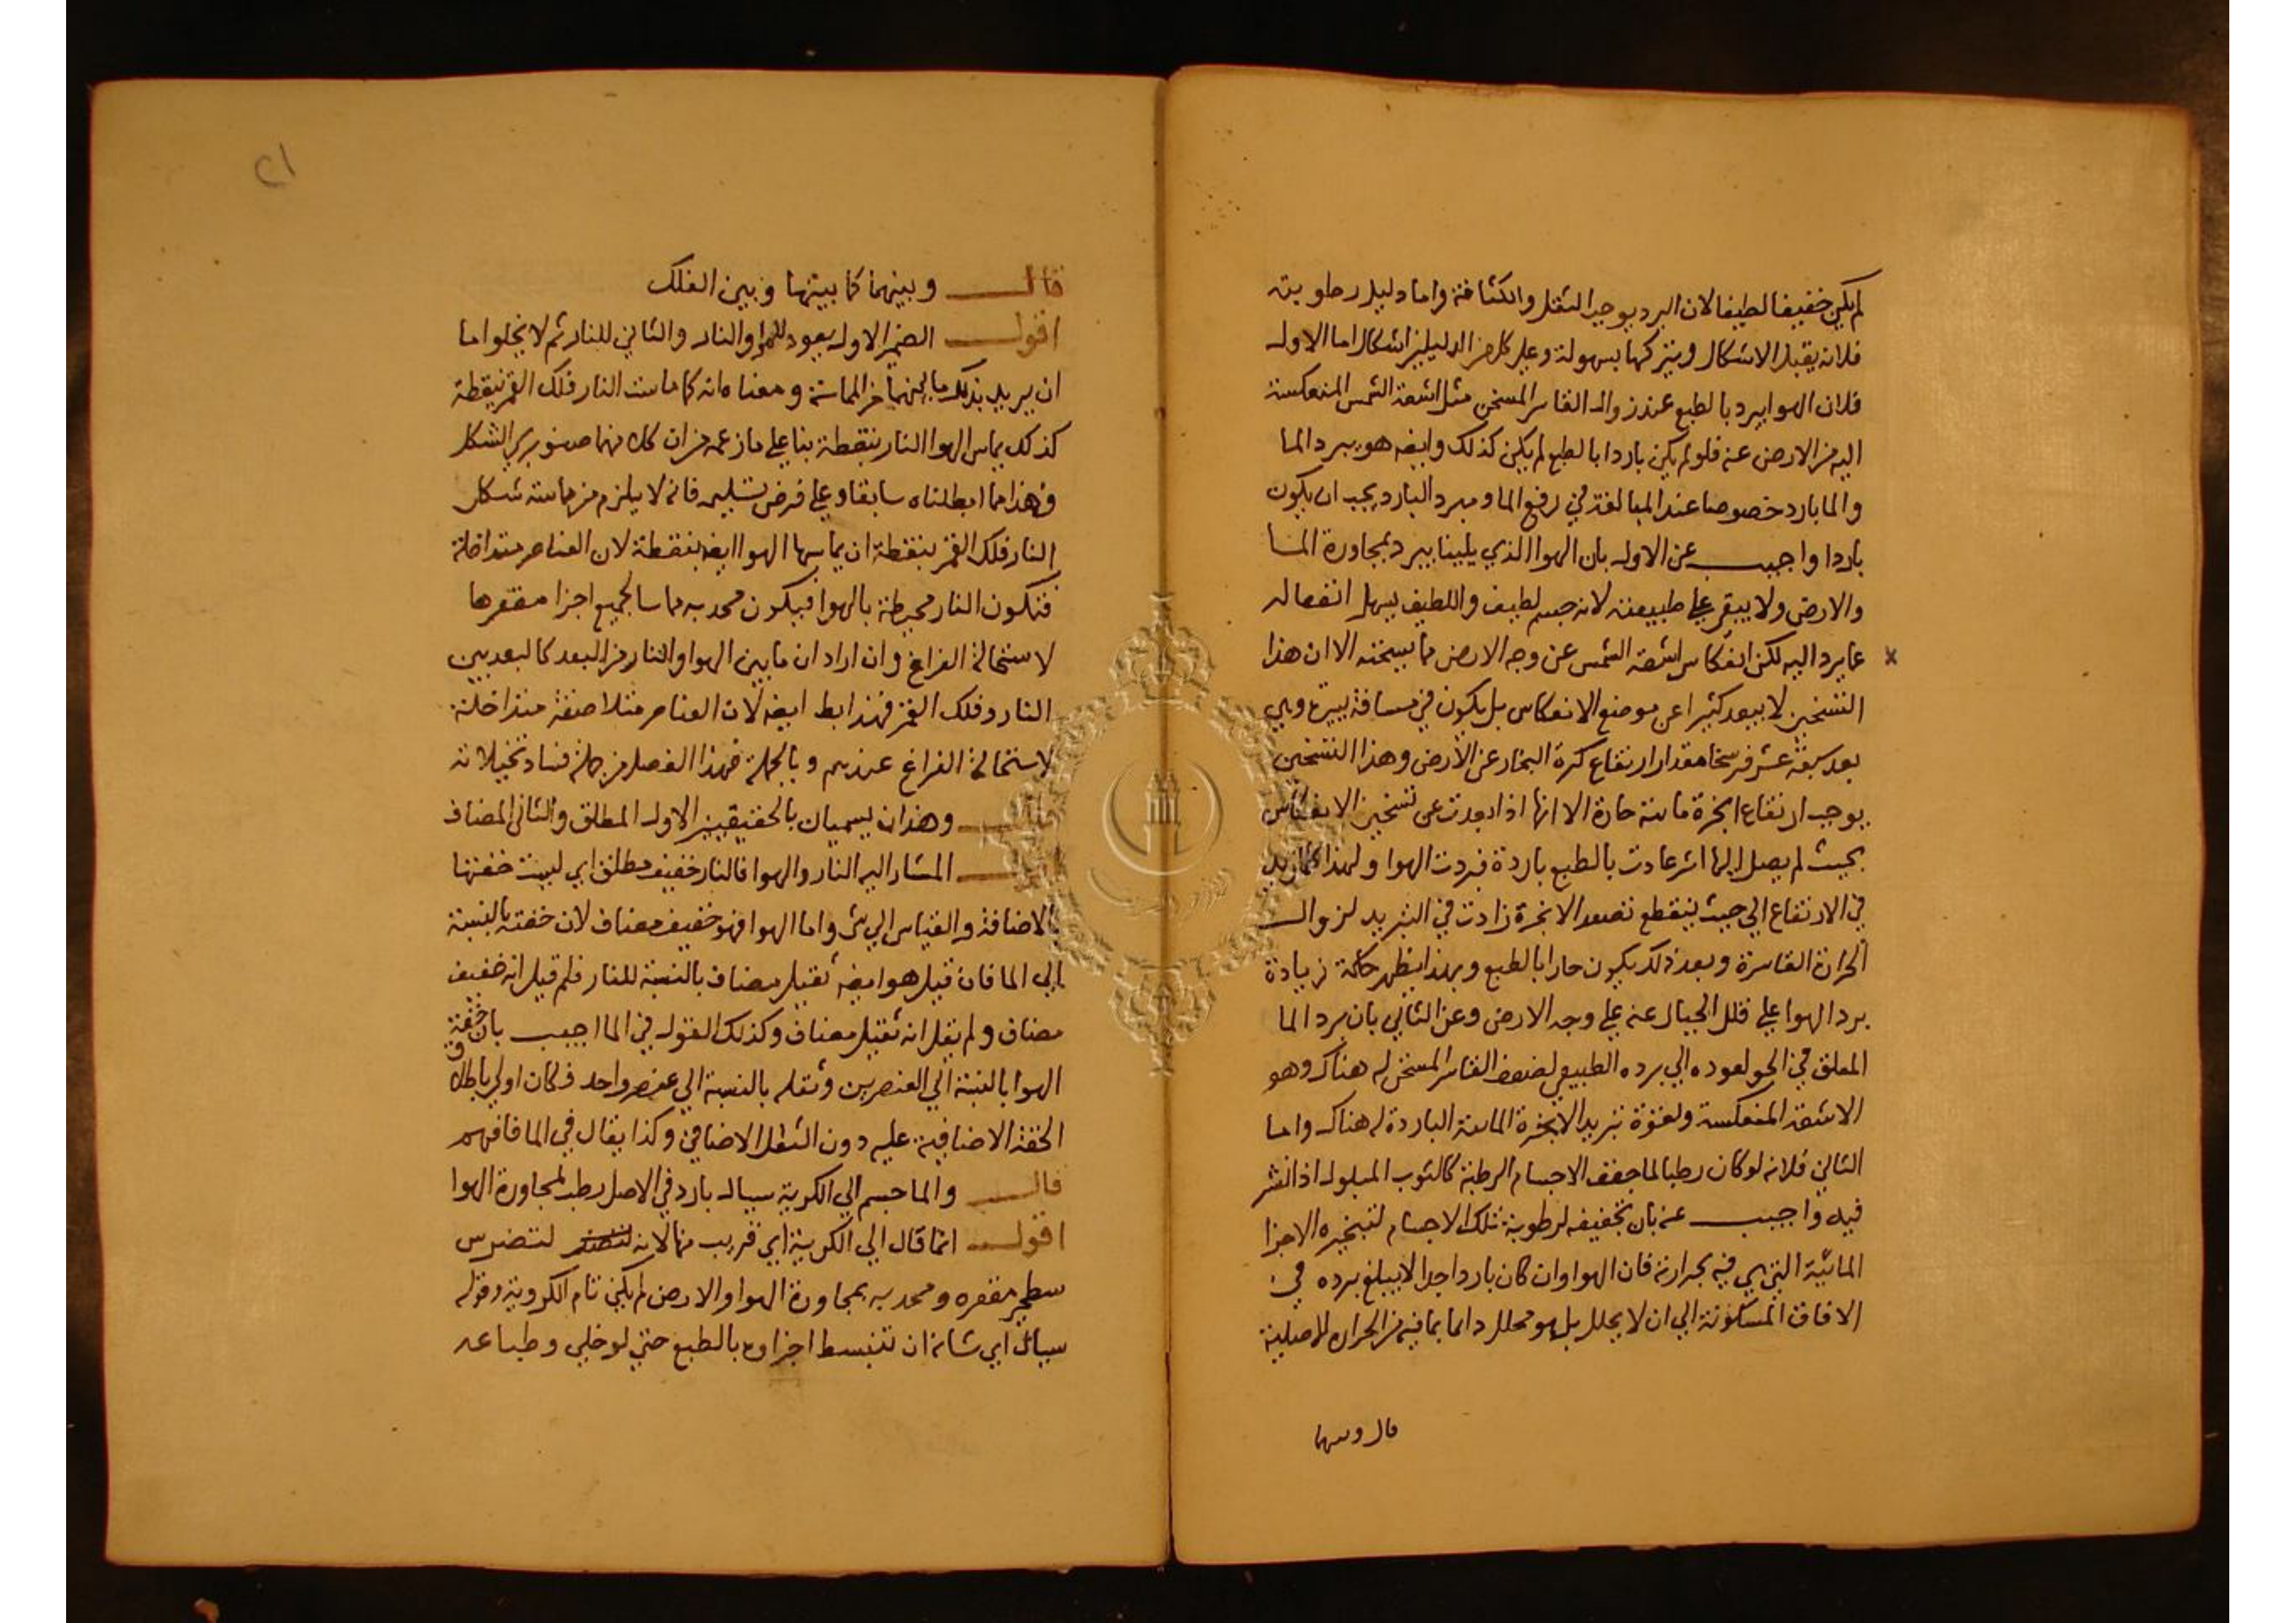 لم يكن خفيفا لطيفا لان البرد يوجب الثقل والكثافة واما دليل رطوبته
فلانه يقبل الاشكال ويتركها بسهولة وعلي كل من الدليلين اشكال اما الاول
فلان الهوا يبرد بالطبع عند زوال القاسر المسخن مثل اشعة الشمس المنعكسة
اليه من الارض عنه فلو لم يكن باردا بالطبع لم يكن كذلك وايضه هو يبرد الما
والما بارد خصوصا عند المبالغة في رفع الما ومبرد البارد يجب ان يكون
باردا واجيب عن الاول بان الهوا الذي يلينا يبرد بمجاورة الما
والارض ولا يبقي علي طبيعته لانه جسم لطيف واللطيف يسهل انفعاله
عما يرد اليه لكن انعكاس اشعة الشمس عن وجه الارض مما يسخنه الا ان هذا
التسخين لا يبعد كثيرا عن موضع الانعكاس بل يكون في مسافة يسيرة وهي
بعد سبعة عشر فرسخا مقدار ارتفاع كرة البخار عن الارض وهذا التسخين
يوجب ارتفاع ابخرة مائية حارة الا انها اذا بعدت عن تسخين الانعكاس
بحيث لم يصل اليها اثر عادت بالطبع باردة فبردت الهوا ولهذا كلما زيد
في الارتفاع الي حيث ينقطع تصعد الابخرة زادت في التبريد لزوال
الحرارة القاسرة وبعد ذلك يكون حارا بالطبع وبهذا يظهر حكمة زيادة
برد الهوا علي قلل الجبال عنه علي وجه الارض وعن الثاني بان برد الما
المعلق في الجو لعوده الي برده الطبيعي لضعف القاسر المسخن له هناك وهو
الاشعة المنعكسة ولقوة تبريد الابخرة المائية الباردة له هناك واما
الثاني فلانه لو كان رطبا لما جفف الاجسام الرطبة كالثوب المبلول اذا نشر
فيه واجيب عنه بان تجفيفه لرطوبة تلك الاجسام لتبخيره الاجزا
المائية التي هي فيه بحرارته فان الهوا وان كان باردا جدا لا يبلغ برده في
الافاق المسكونة الي ان لا يحلل بل هو محلل دايما بما فيه من الحرارة الاصلية
قال وبينها
٢١
قال وبينهما كما بينها وبين الفلك
اقول الضمير الاول يعود للهوا والنار والثاني للنار ثم لا يخلو اما
ان يريد بذلك ما بينهما من المماسة ومعناه انه كما ماست النار فلك القمر بنقطة
كذلك يماس الهوا النار بنقطة بنا علي ما زعمه من ان كلا منهما صنوبري الشكل
وهذا مما ابطلناه سابقا وعلي فرض تسليمه فانه لا يلزم من مماسته شكل
النار فلك القمر بنقطة ان يماسها الهوا ايضه بنقطة لان العناصر متداخلة
فتكون النار محيطة بالهوا فيكون محدبه مماسا لجميع اجزا مقعرها
لاستحالة الفراغ وان اراد ان ما بين الهوا والنار من البعد كالبعد بين
النار وفلك القمر فهذا ابط ايضه لان العناصر متلاصقة متداخلة
لاستحالة الفراغ عندهم وبالجملة فهذا الفصل من جملة فساد تخيلاته
قال وهذان يسميان بالخفيفين الاول المطلق والثاني المضاف
اقول المشار اليه النار والهوا فالنار خفيف مطلق اي ليست خفتها
بالاضافة والقياس الي شي واما الهوا فهو خفيف مضاف لان خفته بالنسبة
الي الما فان قيل هو ايضه ثقيل مضاف بالنسبة للنار فلم قيل انه خفيف
مضاف ولم يقل انه ثقيل مضاف وكذلك القول في الما اجيب بان خفة
الهوا بالنسبة الي العنصرين وثقله بالنسبة الي عنصر واحد فكان اولي باطلاق
الخفة الاضافية عليه دون الثقل الاضافي وكذا يقال في الما فافهم
قال والما جسم الي الكرية سيال بارد في الاصل رطب لمجاورة الهوا
اقول انما قال الي الكرية اي قريب منها لانه لتضرس
سطحي مقعره ومحدبه بمجاورة الهوا والارض لم يكن تام الكروية وقوله
سيال اي شانه ان تنبسط اجزاوه بالطبع حتي لو خلي وطباعه